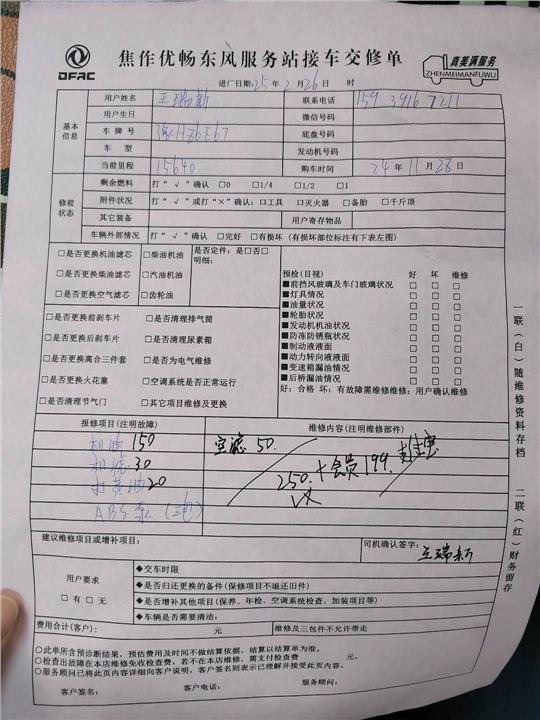 DFAC
焦作优畅东风服务站接车交修单
真美满服务
ZHENMEIMANFUWU
进厂日期:25年2月26日 时
基本信息
用户姓名 王瑞新 联系电话 159 3916 7211
用户生日 微信号码
车牌号 豫HZ6E67 底盘号码
车型 发动机号码
当前里程 15640 购车时间 24年11月28日
修前状态
剩余燃料 打“√”确认 □0 □1/4 □1/2 □1
附件状况 打“√”或打“×”确认:□工具 □灭火器 □备胎 □千斤顶
其它装备 用户寄存物品
车辆外部情况 打“√”确认 □完好 □有损坏 (有损坏部位标注有下表左图)
□是否更换机油滤芯 □柴油机油 是否定件:是□否□
明细:
□是否更换柴油滤芯 □汽油机油
□是否更换空气滤芯 □齿轮油
□是否更换前刹车片 □是否清理排气筒
□是否更换后刹车片 □是否清理尿素箱
□是否更换离合三件套 □是否为电气维修
□是否更换火花塞 □空调系统是否正常运行
□是否清理节气门 □其它项目维修及更换
预检(目视) 好 坏 维修
■前挡风玻璃及车门玻璃状况 □ □ □
■灯具情况 □ □ □
■油量状况 □ □ □
■轮胎状况 □ □ □
■发动机机油状况 □ □ □
■防冻防锈瓶状况 □ □ □
■制动液液面 □ □ □
■动力转向液液面 □ □ □
■变速箱漏油情况 □ □ □
■后桥漏油情况 □ □ □
好:合格 坏:有故障需维修维修:用户确认维修
报修项目(注明故障) 维修内容(注明维修部件)
机油 150 空滤 50.
机滤 30 250.+会员199. 支付宝
打黄油20
ABS泵
建议维修项目或增补项目: 司机确认签字: 王瑞新
用户要求
□有 □无
◆交车时限
◆是否归还更换的备件(保修项目不退还旧件)
◆是否增补其他项目(保养、年检、空调系统检查、加装项目等)
◆车辆是否需要清洁:
费用合计(客户): 元 维修及三包件不允许带走
○此单所含预诊断结果,预估费用及时间不做结算依据,结算以结算单为准。
○检查出故障在本店维修免收检查费,若不在本店维修,需支付检查费 元。
○服务顾问已将此页内容详细向客户说明,客户签名则表示已理解并接受此页内容。
客户签名: 客户电话: 服务顾问:
一联(白)随维修资料存档 二联(红)财务留存